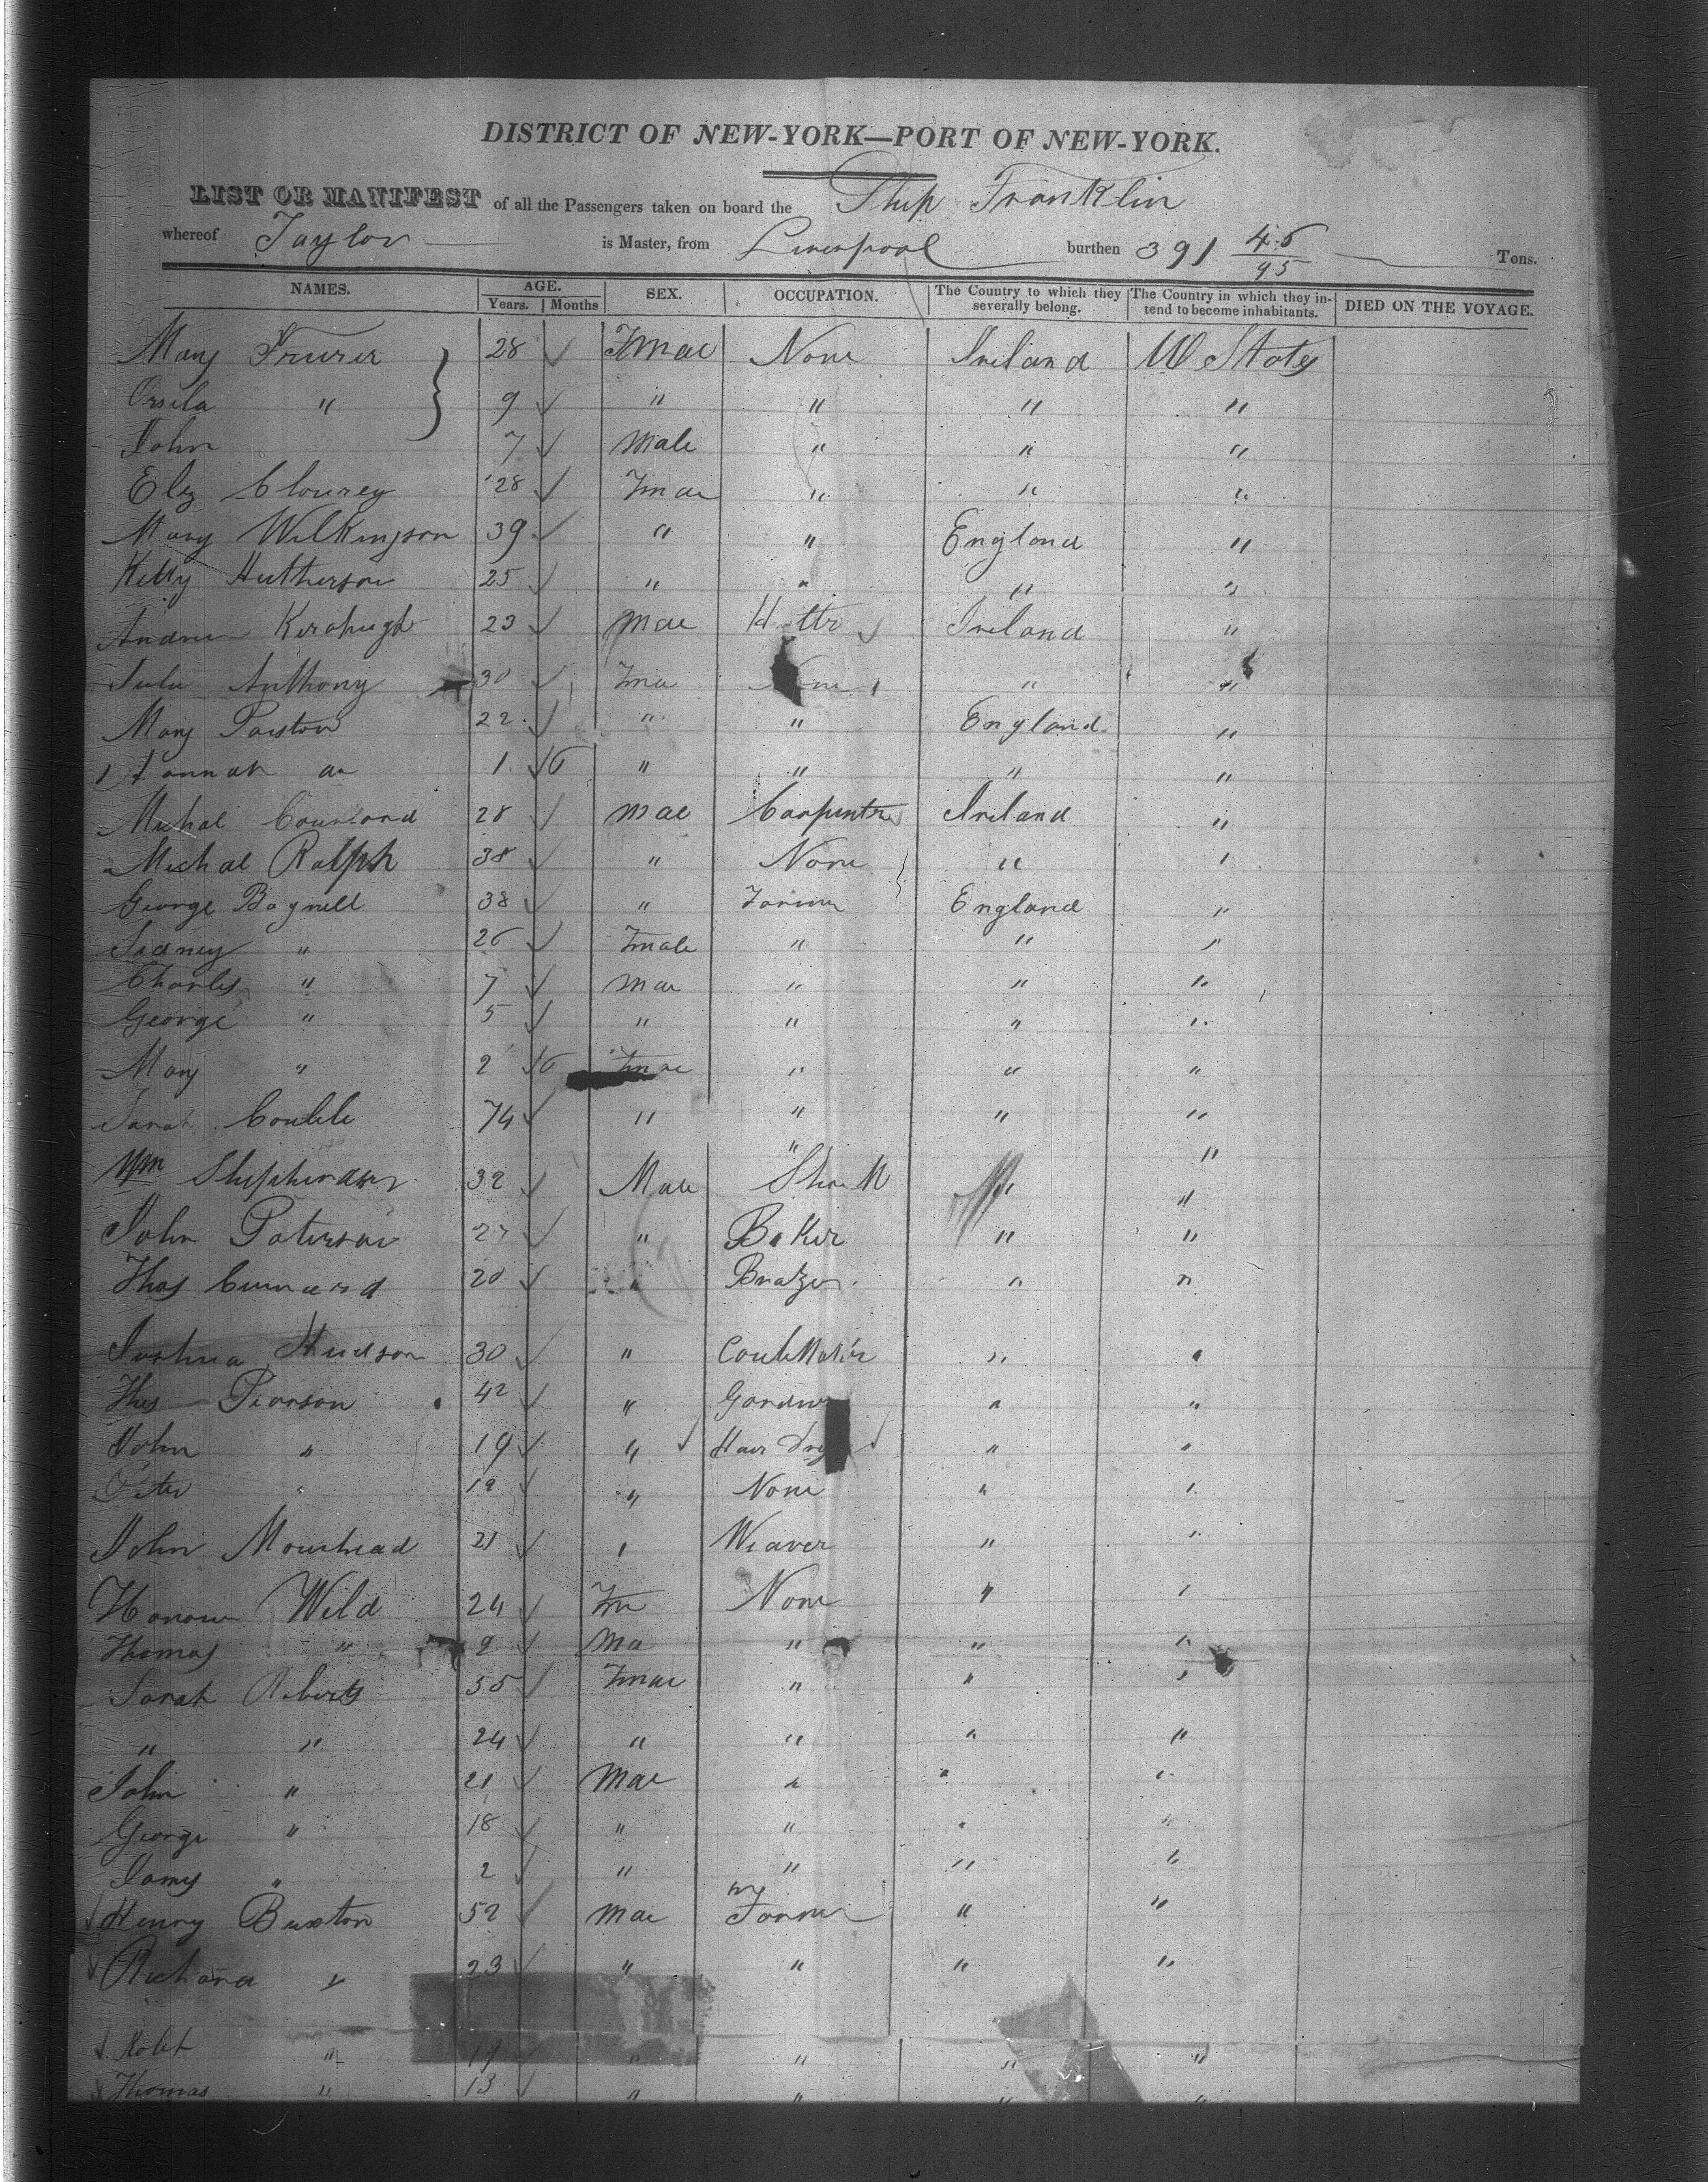 DISTRICT OF NEW-YORK—PORT OF NEW-YORK.
LIST OR MANIFEST of all the Passengers taken on board the Ship Franklin
whereof Taylor is Master, from Liverpool burthen 391 45/95 Tons.
NAMES. AGE. Years. Months SEX. OCCUPATION. The Country to which they severally belong. The Country in which they intend to become inhabitants. DIED ON THE VOYAGE.
Mary 28 Fmae None Ireland U States
Orsela " 9 " " " "
John 7 Male " " "
Eliz Clourey 28 Fmae " " "
Mary Wilkinson 39 " " England "
Kitty Hutherson 25 " " " "
Andrew 23 Mae Ireland "
Anthony 30 Fma None " "
Mary 22 " " England "
Hannah 1 6 " " " "
Michal 28 Mae Carpenter Ireland "
Michal Ralph 38 " None " "
George Bagnell 38 " Farmer England "
Sidney " 26 Fmale " " "
Charles " 7 Mae " " "
George " 5 " " " "
Mary " 2 6 Fmae " " "
Sarah 74 " " " "
Wm 32 Male Shoe M " "
John Paterson 27 " Baker " "
Thos 20 " Brazer " "
Joshua Hudson 30 " " "
Thos Pearson 42 " " "
John " 19 " Hair " "
Peter " 19 " None " "
John Mourhead 21 " Weaver " "
Honour Wild 24 Fm None " "
Thomas " 2 Ma " " "
Sarah Roberts 55 Fmae " " "
" " 24 " " " "
John " 21 Mae " " "
George " 18 " " " "
James " 2 " " " "
Henry Buxton 52 Mae Farmer " "
Richard " 23 " " " "
Robt " 11 " " " "
Thomas " 13 " " " "